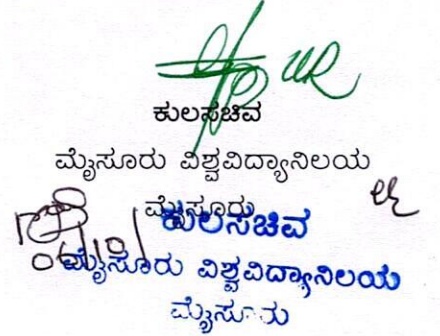 ಕುಲಸಚಿವ
ಮೈಸೂರು ವಿಶ್ವವಿದ್ಯಾನಿಲಯ
ಮೈಸೂರು
ಕುಲಸಚಿವ
ಮೈಸೂರು ವಿಶ್ವವಿದ್ಯಾನಿಲಯ
ಮೈಸೂರು